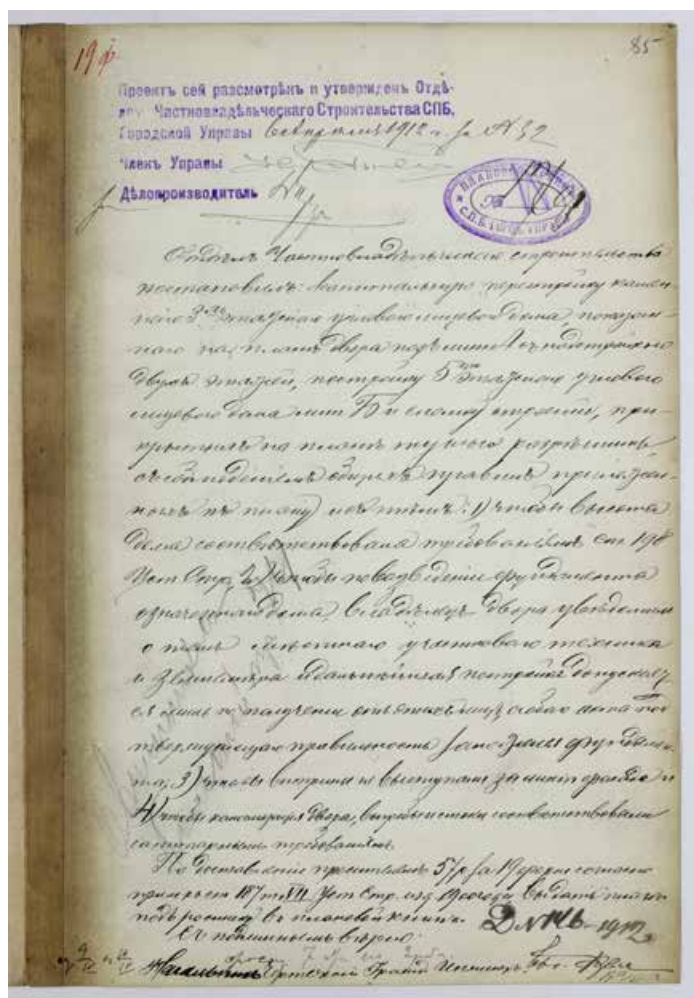 19 ф.
85
Проектъ сей разсмотрѣнъ и утвержденъ Отдѣ-
ломъ Частновладѣльческаго Строительства СПБ.
Городской Управы 6 Апрѣля 1912 г. за № 32
Членъ Управы
Дѣлопроизводитель
Отдѣлъ Частновладѣльческаго строительства
постановилъ: капитальную перестройку камен-
наго 3хъ этажнаго углового лицевого дома, показан-
наго на планѣ двора подъ лит. съ надстройкою
двухъ этажей, постройку 5ти этажнаго углового
лицевого дома лит. Б и сломку строений, при-
крытыхъ на планѣ тушью разрѣшить
съ соблюденіемъ общихъ правилъ приложен-
ныхъ къ плану 1) чтобы высота
дома соотвѣтствовала требованіямъ ст. 198
Уст. Стр., 2) чтобы по возведеніи фундамента
означеннаго дома, владѣлецъ двора увѣдомилъ
о томъ мѣстнаго участковаго техника
и Землемѣра и дальнѣйшая постройка допускает-
ся лишь по полученіи отъ этихъ лицъ особаго акта под-
тверждающаго правильность заложенія фундамен-
та; 3) чтобы витрины не выступали за линію фасада и
4) чтобы канализація двора, выгребы и стоки соотвѣтствовали
санитарнымъ требованіямъ.
По доставленіи просителемъ 57 р. за 19 форм. согласно
прим. къ ст. 187 т. XII Уст. Стр. изд. 1900 года, выдать планъ
подъ росписку въ плановой книгѣ. Д № 146-1912
Съ подлиннымъ вѣрно:
Начальникъ Чертежной Гражд. Инженеръ